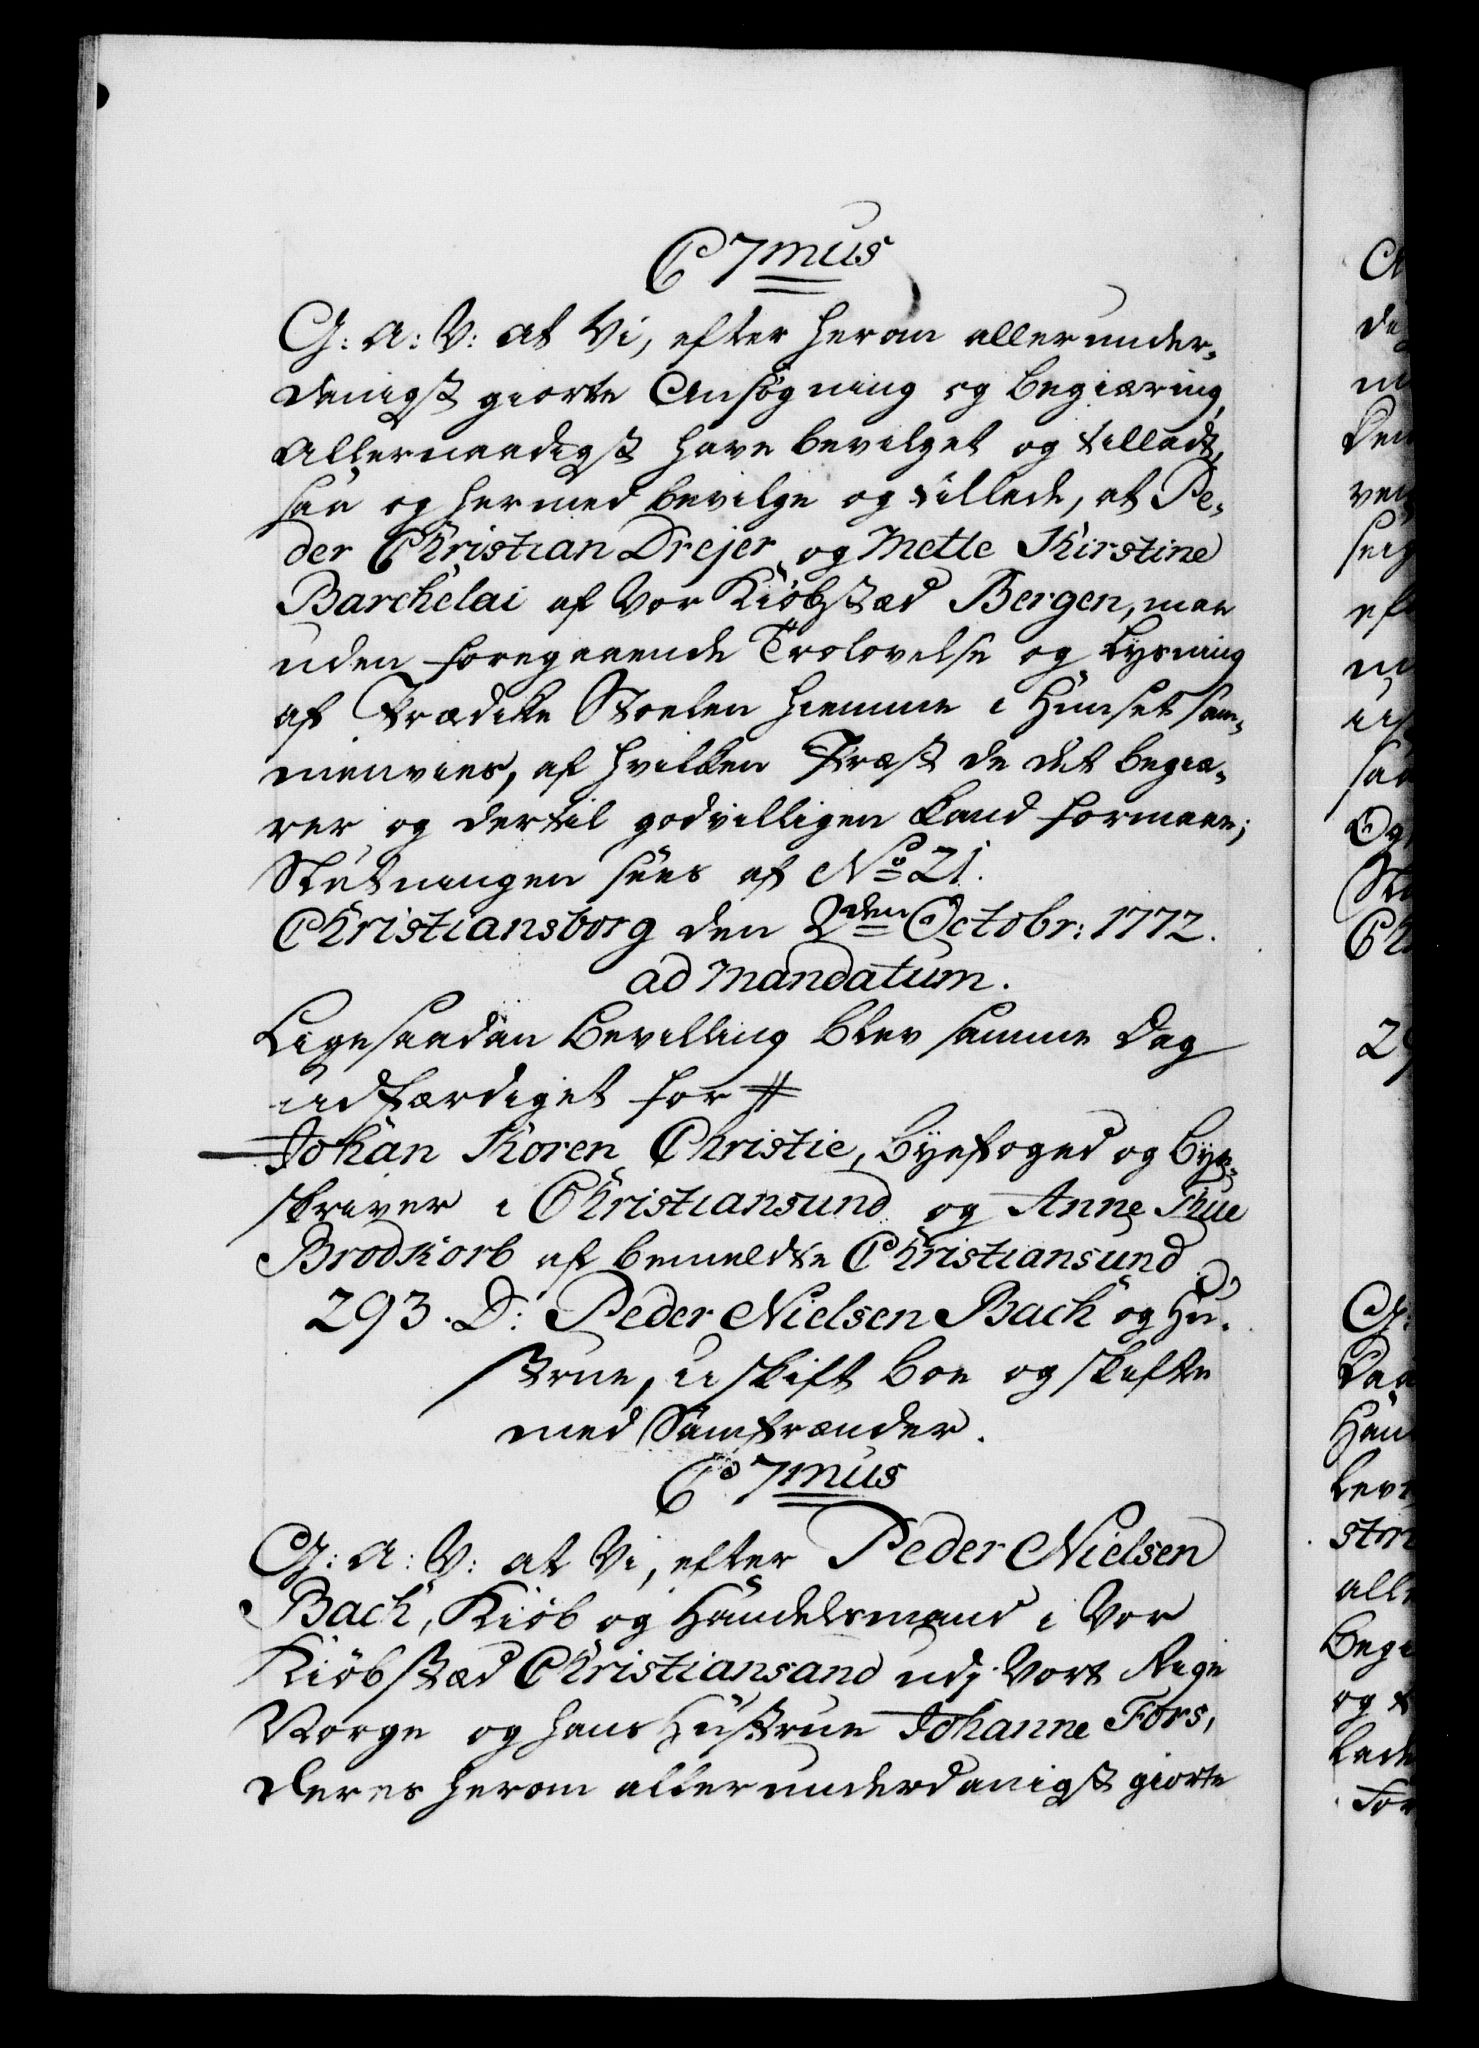 C 7mus
G: A: V: at Vi, efter herom allerunder-
danigst giorte Ansøgning og Begiæring,
Allernaadigst have bevilget og tilladt,
saa og hermed bevilge og tillade, at Pe-
der Christian Drejer og Mette Kirstine
Barchelai af Vor Kiøbstæd Bergen, maa
uden foregaaende Trolovelse og Lysning
af Prædike Stoelen hiemme i Huuset sam-
menvies, af hvilken Præst de det begiæ-
rer og dertil godvilligen kand formaae;
Slutningen sees af No 21.
Christiansborg den 2den Octobr: 1772.
ad mandatum.
Ligesaadan Bevilling blev samme Dag
udfærdiget for #
Johan Koren Christie, Byefoged og Bye-
skriver i Christiansund og Anne Thue
Brodkorb af bemeldte Christiansund
293. D: Peder Nielsen Bach og Hu-
strue, uskift Boe og skifte
med Samfrænder.
C 7mus
G: A: V: at Vi, efter Peder Nielsen
Bach, Kiøb og Handelsmand i Vor
Kiøbstæd Christiansand udj Vort Rige
Norge og hans Hustrue Johanne Fors,
deres herom allerunderdanigst giorte